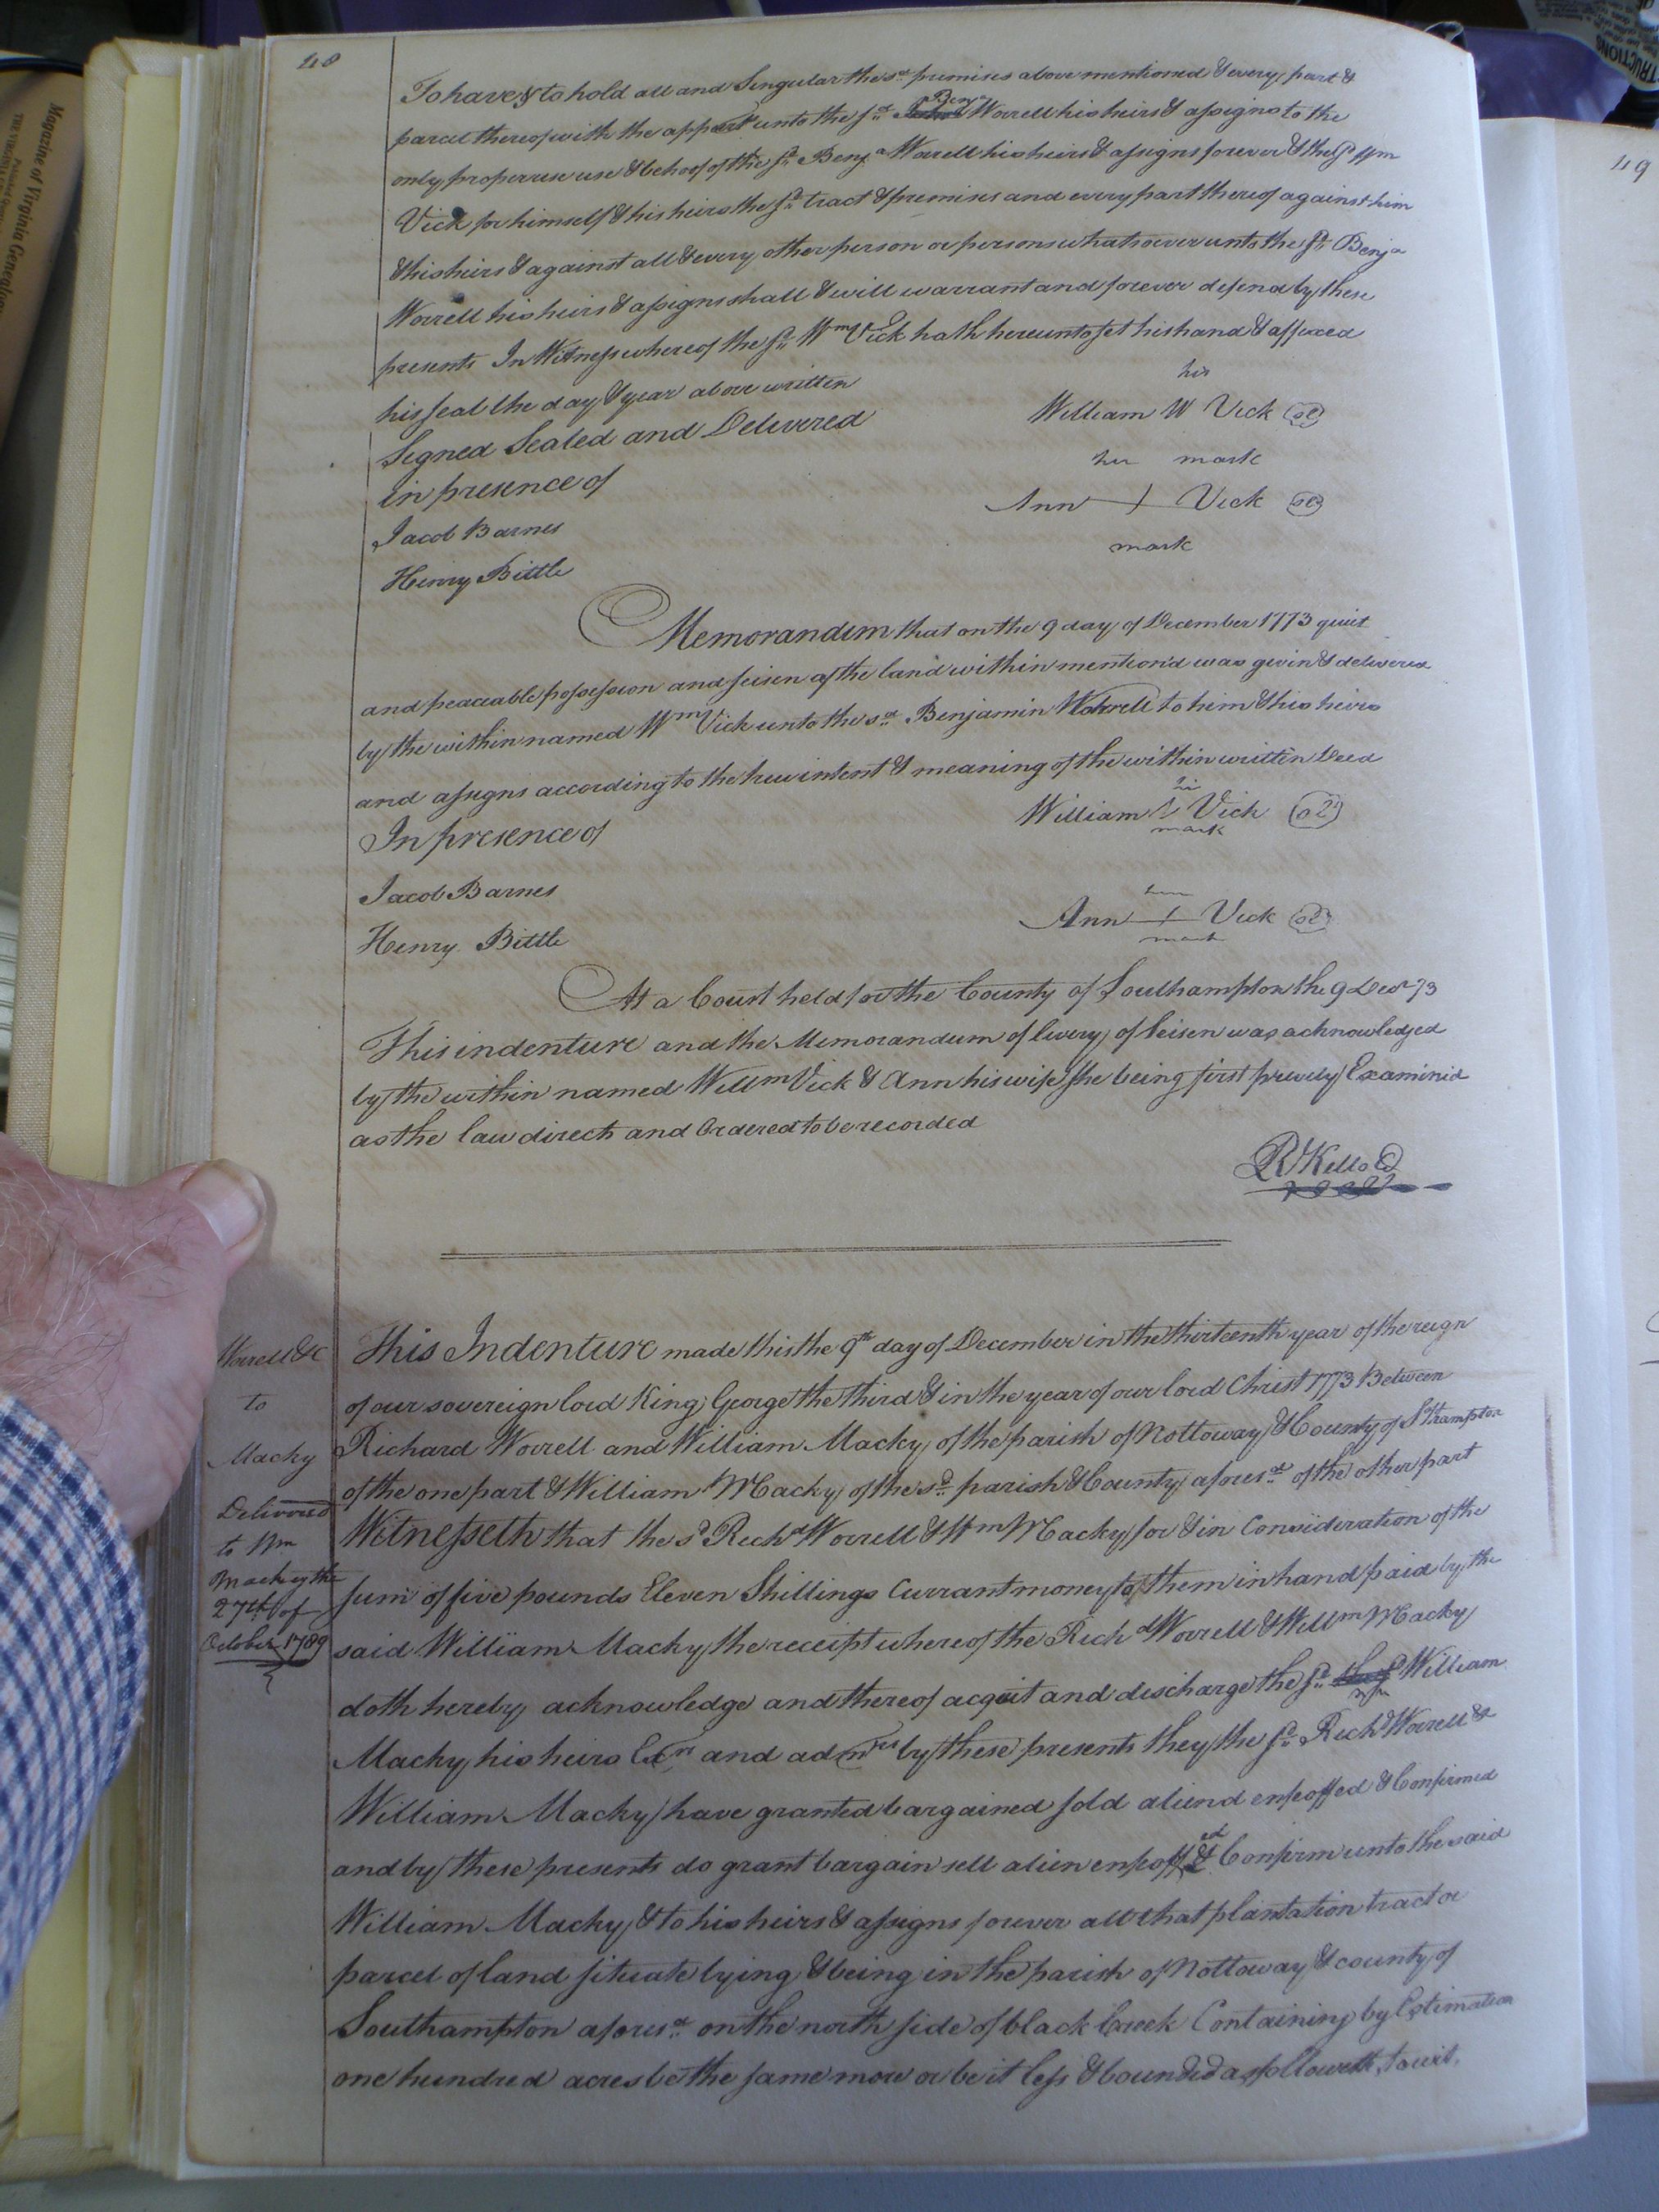 48
To have & to hold all and Singular the sd. premises above mentioned & every part &
parcel thereof with the appart unto the sd. Benja Worrell his heirs & assigns to the
only proper use use & behoof of the sd. Benja Worrell his heirs & assigns forever & the sd Wm
Vick for himself & his heirs the sd. tract & premises and every part thereof against him
& his heirs & against all & every other person or persons whatsoever unto the sd. Benja
Worrell his heirs & assigns shall & will warrant and forever defend by these
presents In Witness whereof the sd. Wm Vick hath hereunto set his hand & affixed
his seal the day & year above written
his
Signed Sealed and Delivered William W Vick
in presence of her mark
Jacob Barnes Ann + Vick
Henry Bittle mark
Memorandum that on the 9 day of December 1773 quiet
and peaceable possession and seisen of the land within mention'd was given & delivered
by the within named Wm Vick unto the sd. Benjamin Worrell to him & his heirs
and assigns according to the true intent & meaning of the within written Deed
In presence of William Vick
mark
Jacob Barnes
Henry Bittle Ann + Vick
mark
At a Court held for the County of Southampton the 9 Decr 73
This indenture and the Memorandum of livery of Seisen was acknowledged
by the within named Willm Vick & Ann his wife she being first privily Examined
as the law directs and Ordered to be recorded
R Kello
Worrell &c
to
Macky
Delivered
to Wm
Macky the
27th of
October 1789
This Indenture made this the 9th day of December in the thirteenth year of the reign
of our sovereign lord King George the third & in the year of our lord Christ 1773 Between
Richard Worrell and William Macky of the parish of Nottoway & County of Sthampton
of the one part & William Macky of the sd. parish & County aforesd. of the other part
Witnesseth that the sd Richd Worrell & Wm Macky for & in Consideration of the
sum of five pounds Eleven Shillings Currant money to them in hand paid by the
said William Macky the receipt whereof the Richd Worrell & Willm Macky
doth hereby acknowledge and thereof acquit and discharge the sd. William
Macky his heirs Exrs and admrs by these presents they the sd. Richd Worrell &
William Macky have granted bargained sold aliend enfeoffed & Confirmed
and by these presents do grant bargain sell alien enfeoffed & Confirm unto the said
William Macky & to his heirs & assigns forever all that plantation tract or
parcel of land situate lying & being in the parish of Nottoway & county of
Southampton aforesd. on the north side of black Creek Containing by Estimation
one hundred acres be the same more or be it less & bounded as followeth, to wit,
49
Magazine of Virginia Genealogy